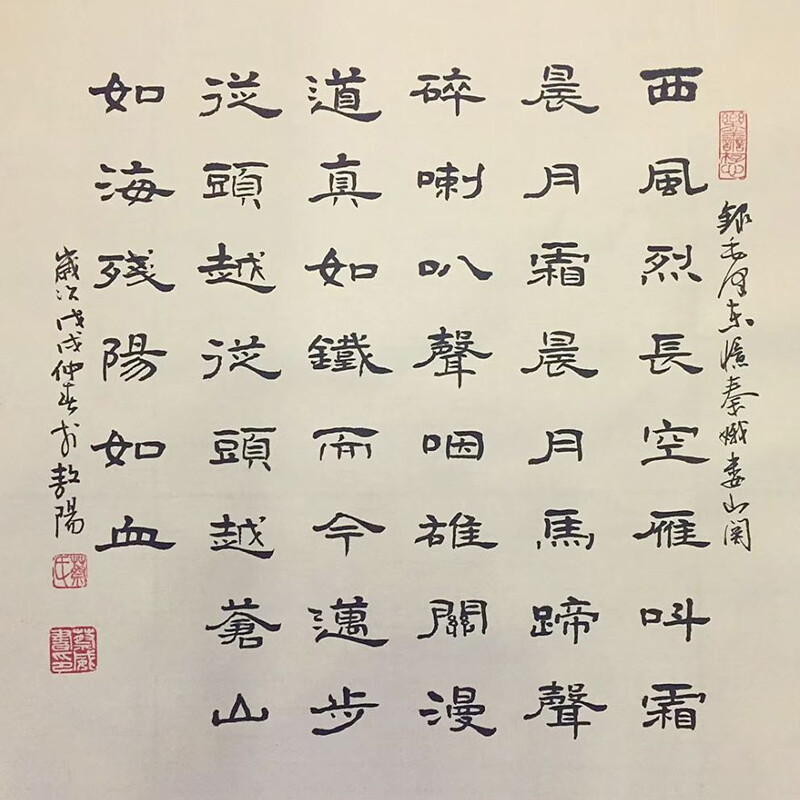 錄毛澤东憶秦娥娄山関
西風烈長空雁叫霜
晨月霜晨月馬蹄聲
碎喇叭聲咽雄關漫
道真如鐵而今邁步
從頭越從頭越蒼山
如海殘陽如血
歲次戊戌仲春於敖陽
蔡氏
蔡威書印